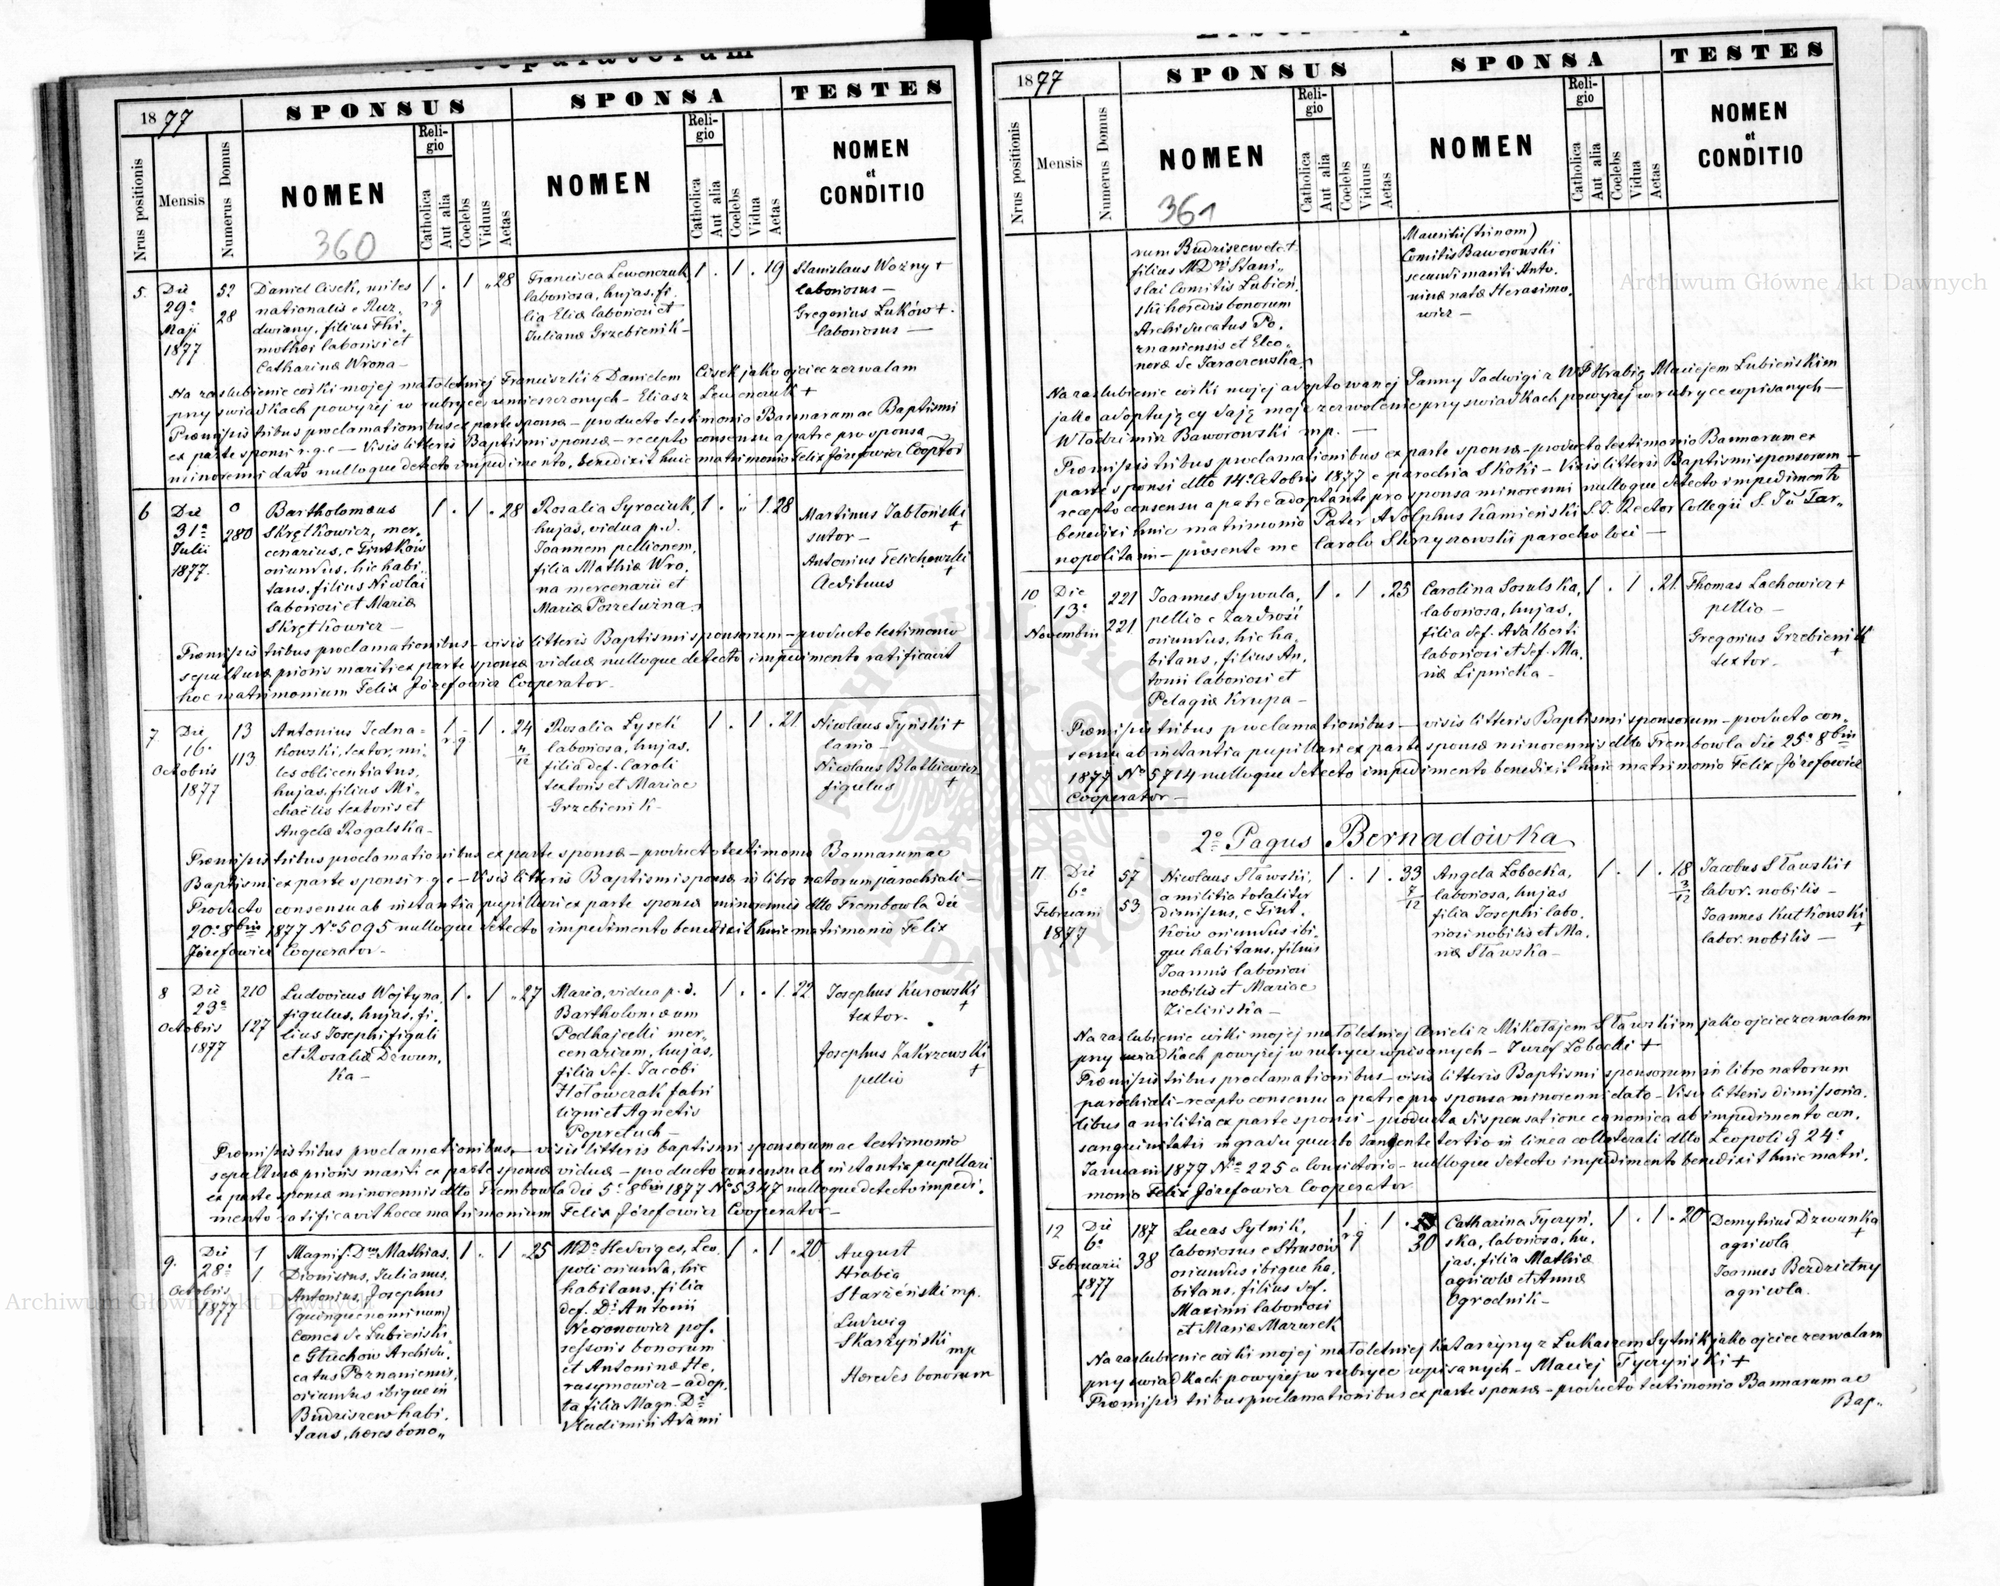 1877
SPONSUS
SPONSA
TESTES
Nrus positionis
Mensis
Numerus Domus
NOMEN
Religio
Catholica
Aut alia
Coelebs
Viduus
Aetas
NOMEN
Religio
Catholica
Aut alia
Coelebs
Vidua
Aetas
NOMEN
et
CONDITIO
360
5.
Die
29ª
Maji
1877
52
28
Daniel Cisek, miles
nationalis e Ruz-
dwiany, filius Thi-
mothei laboriosi et
Catharinæ Wrona -
1 . 1 . 28
r.g
Francisca Lewonczuk
laboriosa, hujas, fi-
lia Eliæ laboriosi et
Julianæ Grzebienik -
1 . 1 . 19
Stanislaus Woźny +
laboriosus -
Gregorius Łuków +
laboriosus -
Na zaślubienie córki mojej małoletniej Franciszki z Danielem Cisek jako ojciec zezwalam
przy świadkach powyżej w rubryce umieszczonych - Eliasz Lewonczuk +
Præmissis tribus proclamationibus ex parte sponsæ - producto testimonio Bannorum ac Baptismi
ex parte sponsi r.g.c - Visis litteris Baptismi sponsæ - recepto consensu a patre pro sponsa
minorenni dato nulloque detecto impedimento, benedixit huic matrimonio Felix Józefowicz Cooptor
6
Die
31ª
Julii
1877.
0
280
Bartholomæus
Skrętkowicz, mer-
cenarius, e Tiutków
oriundus, hic habi-
tans, filius Nicolai
laboriosi et Mariæ
Skrętkowicz -
1 . 1 . 28
Rosalia Syrociuk,
hujas, vidua p.d.
Joannem pellionem,
filia Mathiæ Wro-
na mercenarii et
Mariæ
1 . 1.28
Martinus Jabłoński
+
sutor -
Antonius Telichowski
+
Aedituus
Præmissis tribus proclamationibus - visis litteris Baptismi sponsorum - producto testimonio
sepulturæ prioris mariti ex parte sponsæ viduæ nulloque detecto impedimento ratificavit
hoc matrimonium Felix Józefowicz Cooperator -
7
Die
16ª
Octobris
1877
13
113
Antonius Jedna-
kowski, textor, mi-
les oblicentiatus,
hujas, filius Mi-
chaëlis textoris et
Angelæ Rogalska -
1 . 1 . 24
r.g. 4/12
Rosalia Łysek
laboriosa, hujas,
filia def. Caroli
textoris et Mariae
Grzebienik -
1 . 1 . 21
Nicolaus Tyński +
lanio -
Nicolaus Blatkiewicz
+
figulus
Præmissis tribus proclamationibus ex parte sponsæ - producto testimonio Bannorum ac
Baptismi ex parte sponsi r.g.c - Visis litteris Baptismi sponsæ in libro natorum parochiali -
Producto consensu ab instantia pupillari ex parte sponsæ minorennis dtto Trembowla die
20ª 8bris 1877 Nº 5095 nulloque detecto impedimento benedixit huic matrimonio Felix
Józefowicz Cooperator -
8
Die
23ª
Octobris
1877
210
127
Ludovicus Wojtyna,
figulus, hujas, fi-
lius Josephi figuli
et Rosaliæ Dzwun-
ka -
1 . 1 . 27
Maria, vidua p.d.
Bartholomæum
Podhajecki mer-
cenarium, hujas,
filia def. Jacobi
Hołowczak fabri
ligni et Agnetis
Popreluch -
1 . . 1. 22
Josephus Kurowski
+
textor -
Josephus Zakrzewski
+
pellio
Præmissis tribus proclamationibus, - visis litteris baptismi sponsorum ac testimonio
sepulturæ prioris mariti ex parte sponsæ viduæ - producto consensu ab instantia pupillari
ex parte sponsæ minorennis dtto Trembowla die 5ª 8bris 1877 Nº 5347 nulloque detecto impedi-
mento ratificavit hocce matrimonium Felix Józefowicz Cooperator -
9.
Die
28ª
Octobris
1877
1
1
Magnif. Dnus Mathias,
Dionisius, Julianus,
Antonius, Josephus
(quinquenominum)
Comes de Łubieński,
e Głuchow Archidu-
catus Poznaniensis,
oriundus ibique in
Budziszew habi-
tans, hæres bono-
1 . 1 . 25
MDª Hedviges, Leo-
poli oriunda, hic
habitans, filia
def. Di Antonii
Negronowicz pos-
sessoris bonorum
et Antoninæ He-
rasymowicz - adop-
ta filia Magn. Di
Vladimiri Adami
1 . 1 . 20
August
Hrabia
Starzeński mp.
Ludwig
Skarżyński
mp
Hæredes bonorum
1877
SPONSUS
SPONSA
TESTES
Nrus positionis
Mensis
Numerus Domus
NOMEN
Religio
Catholica
Aut alia
Coelebs
Viduus
Aetas
NOMEN
Religio
Catholica
Aut alia
Coelebs
Vidua
Aetas
NOMEN
et
CONDITIO
361
rum Budziszew etc +
filius MDni Stani-
slai Comitis Łubień-
ski hæredis bonorum
Archiducatus Po-
znaniensis et Eleo-
noræ de Taraczewska
Mauritii (trinom)
Comitis Baworowski
secundi mariti Anto-
ninæ natæ Herasimo-
wicz -
Na zaślubienie córki mojej adoptowanej Panny Jadwigi z WP Hrabią Maciejem Łubieńskim
jako adoptujący daję moje zezwolenie przy świadkach powyżej w rubryce wpisanych -
Włodzimirz Baworowski mp. -
Præmissis tribus proclamationibus ex parte sponsæ - producto testimonio Bannorum ex
parte sponsi dtto 14ª Octobris 1877 e parochia Skoki - Visis litteris Baptismi sponsorum -
recepto consensu a patre adoptante pro sponsa minorenni nulloque detecto impedimento
benedixi huic matrimonio Pater Adolphus Kamieński S.J. Rector Collegii S.J. Tar-
nopolitani - præsente me Carolo Skrzyszowski parocho loci -
10
Die
13ª
Novembris
221
221
Joannes Sywula,
pellio e Zazdrość
oriundus, hic ha-
bitans, filius An-
tonii laboriosi et
Pelagiæ Krupa -
1 . 1 . 25
Carolina Sosulska,
laboriosa, hujas,
filia def. Adalberti
laboriosi et def. Ma-
riæ Lipnicka -
1 . 1 . 21
Thomas Lachowicz +
pellio -
Gregorius Grzebienik
+
textor -
Præmissis tribus proclamationibus - visis litteris Baptismi sponsorum - producto con-
sensu ab instantia pupillari ex parte sponsæ minorennis dtto Trembowla die 25ª 8bris
1877 Nº 5714 nulloque detecto impedimento benedixit huic matrimonio Felix Józefowicz
Cooperator -
2º Pagus Bernadówka
11
Die
6ª
Februarii
1877
57
53
Nicolaus Sławski,
a militia totaliter
dimissus, e Tiut-
ków oriundus ibi-
que habitans, filius
Joannis laboriosi
nobilis et Mariae
Zielińska -
1 . 1 . 33
7/12
Angela Łobocka,
laboriosa, hujas
filia Josephi labo-
riosi nobilis et Ma-
riæ Sławska -
1 . 1 . 18
3/12
Jacobus Sławski +
labor. nobilis -
Joannes Kutkowski
+
labor. nobilis -
Na zaślubienie córki mojej małoletniej Anieli z Mikołajem Sławskim jako ojciec zezwalam
przy świadkach powyżej w rubryce wpisanych - Józef Łobocki +
Præmissis tribus proclamationibus - visis litteris Baptismi sponsorum in libro natorum
parochiali - recepto consensu a patre pro sponsa minorenni dato - Visis litteris dimissoria-
libus a militia ex parte sponsi - producta dispensatione canonica ab impedimento con-
sanguinitatis in gradu quarto tangente tertio in linea collaterali dtto Leopoli d 24ª
Januarii 1877 Nº 225 a Consistorio - nulloque detecto impedimento benedixit huic matri-
monio Felix Józefowicz Cooperator
12
Die
6ª
Februarii
1877
187
38
Lucas Sytnik,
laboriosus e Strusow
oriundus ibique ha-
bitans, filius def.
Maximi laboriosi
et Mariæ Mazurek
1 . 1 .
r.g 30
Catharina Tyczyń-
ska, laboriosa, hu-
jas, filia Mathiæ
agricolæ et Annæ
Ogrodnik -
1 . 1 . 20
Demytrius Dzwunka
+
agricola
Joannes Bezdzietny
agricola.
Na zaślubienie córki mojej małoletniej Katarzyny z Łukaszem Sytnik jako ojciec zezwalam
przy świadkach powyżej w rubryce wpisanych - Maciej Tyczyński +
Præmissis tribus proclamationibus ex parte sponsæ - producto testimonio Bannorum ac
Bap-
Archiwum Główne Akt Dawnych
Archiwum Główne Akt Dawnych